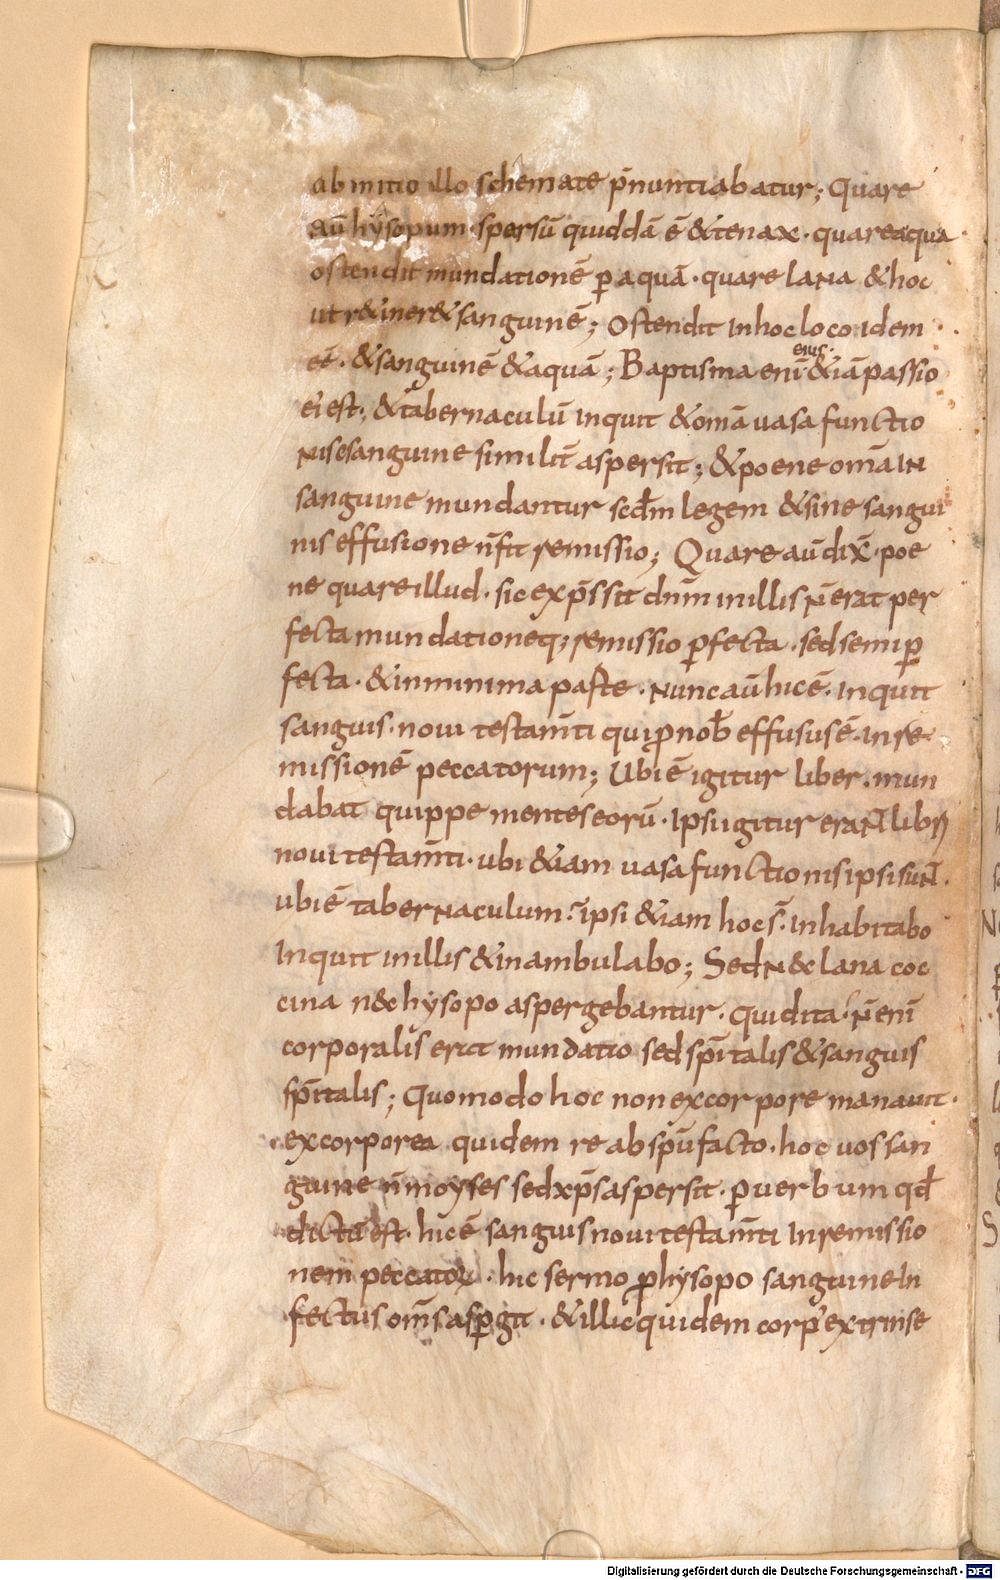 ab initio illo schemate p̄nuntiabatur; Quare
aū hysopum · spersū quiddā ē &tenax · quare aqua
ostendit mundationē ꝑ aquā · quare lana &hoc
ut r&iner& sanguinē; Ostendit in hoc loco idem
eē · &sanguinē &aquā; Baptisma enī eius · &iā passio
ei est; &tabernaculū inquit &omā uasa functio
nis e sanguine similit̄ aspersit; &poene omā in
sanguine mundantur scd̄m legem &sine sangui
nis effusione n̄ fit remissio; Quare aū dix̄ · poe
ne quare illud · sic exp̄ssit dnm̄ in illis n̄ erat per
fecta mundatione q; remissio ꝑfecta · sed semiꝑ
fecta · &in minima parte · Nunc aū hic ē · inquit
sanguis · noui testam̄ti qui ꝓ nob̄ effusus ē · in re
missionē peccatorum; Ubi ē igitur liber · mun
dabat quippe mentes eorū · Ipsi igitur erant libri
noui testam̄ti · ubi &iam uasa functionis ipsi sunt ·
ubi ē tabernaculum · ipsi &iam hoc s̄ · Inhabitabo
inquit in illis &inambulabo; Sed n&c lana coc
cina n&c hysopo aspergebantur · quid ita · n̄ enī
corporalis erat mundatio sed sp̄italis &sanguis
sp̄italis; Quomodo hoc non ex corpore manauit ·
ex corpore a quidem re ab spū facto · hoc uos san
guine n̄ moyses sed xp̄s aspersit · ꝑ uerbum qd̄
dictū est · hic ē sanguis noui testam̄ti in remissio
nem peccatoꝝ · hic sermo ꝑ hysopo sanguine in
fectus om̄s asꝑgit · &illic quidem corp' extrinse
Digitalisierung gefördert durch die Deutsche Forschungsgemeinschaft - DFG